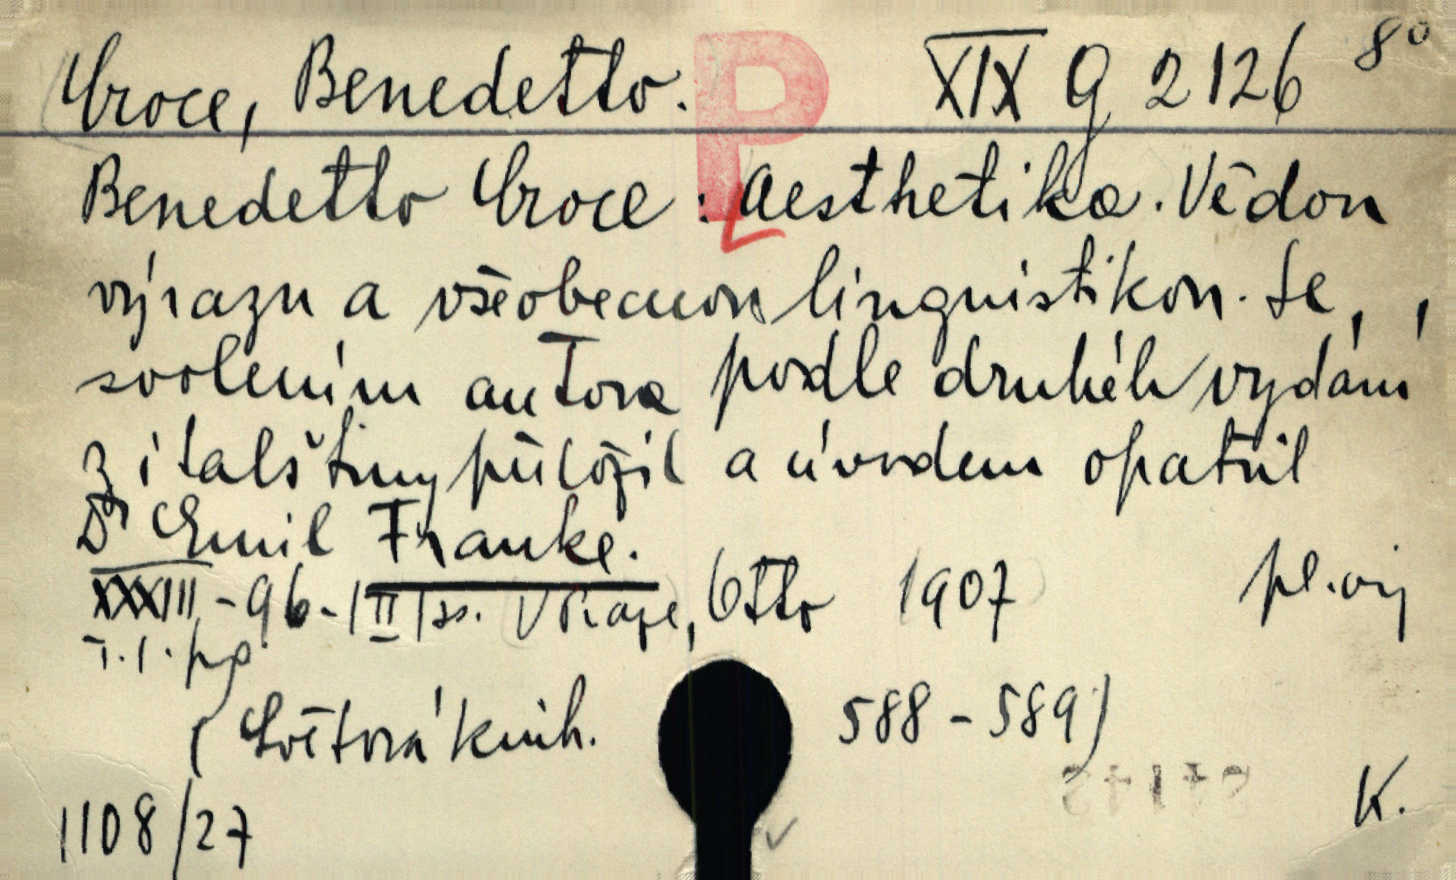 Croce, Benedetto. P XIX G 2126 8°
Benedetto Croce: Aesthetika. Vědou
výrazu a všeobecnou linguistikou. Se
svolením autora podle druhéh vydání
z italštiny přeložil a úvodem opatřil
Dr Emil Franke.
XXXIII-96-|II| ss. V Praze, Otto 1907 pl. vij
T. I. pg
(Světová knih. 588-589)
K.
1108/27